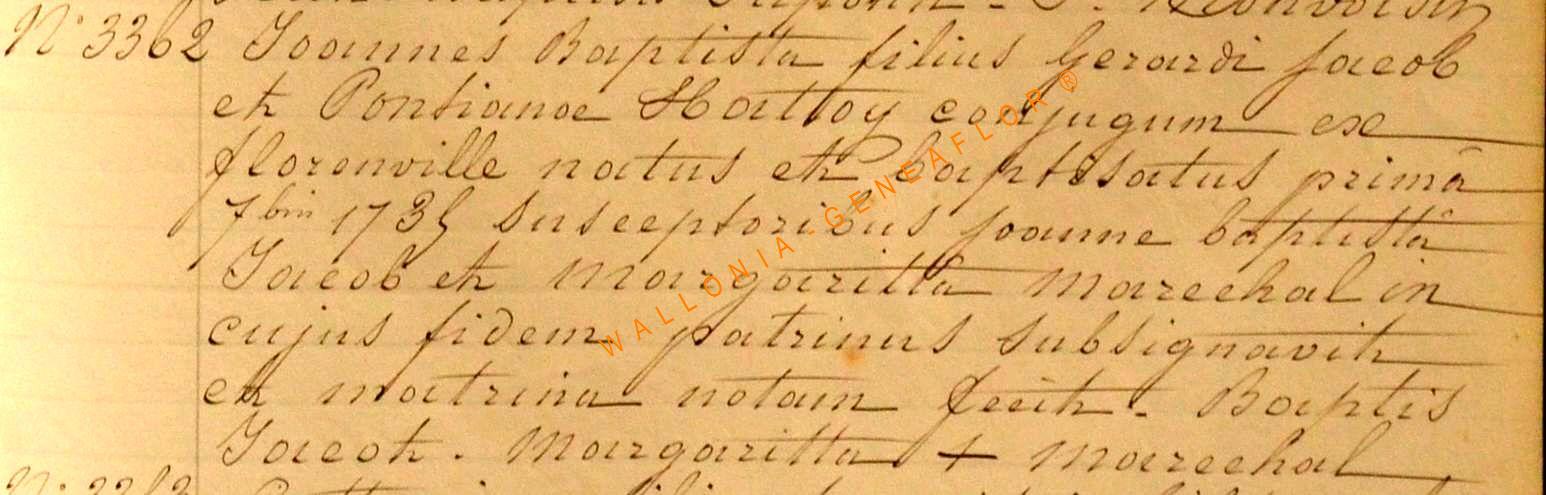 N° 3362 Joannes Baptista filius Gerardi Jacob
et Pontianae Hattoy conjugum ex
florenville natus et baptisatus primâ
7bris 1735 susceptoribus Joanne baptistâ
Jacob et Margarittâ Marechal in
cujus fidem patrinus subsignavit
et matrina notam fecit. Baptis
Jacot. Margaritta + Marechal
WALLONIA-GENEAFLOR®